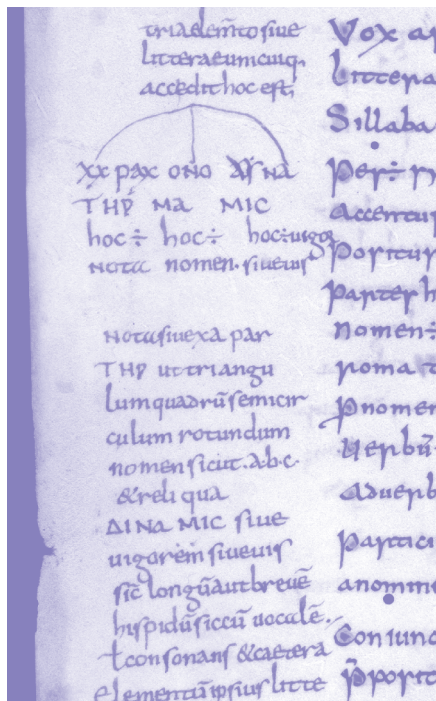 tria elem̄to siue
litterae unicuiq,
accedit hoc est,
xx pax ono
THP MA MIC
hoc ÷ hoc ÷ hoc ÷ uigor
nota nomen. siue uis
nota siue xa par
THP ut triangu
lum quadrū semicir
culum rotundum
nomen sicut .a.b.c.
& reli qua
ΔINA MIC siue
uigorem siue uis
sic longū aut breuē
hispidū siccū uocalē.
ł consonans & caetera
elementū ipsius litte
Vox
Littera
Sillaba
Per ÷
Accentus
Positus
Partes
nomen ÷
roma
Pnomen
Uerbū
Aduerb
Partici
anomine
Coniunc
P̄posit